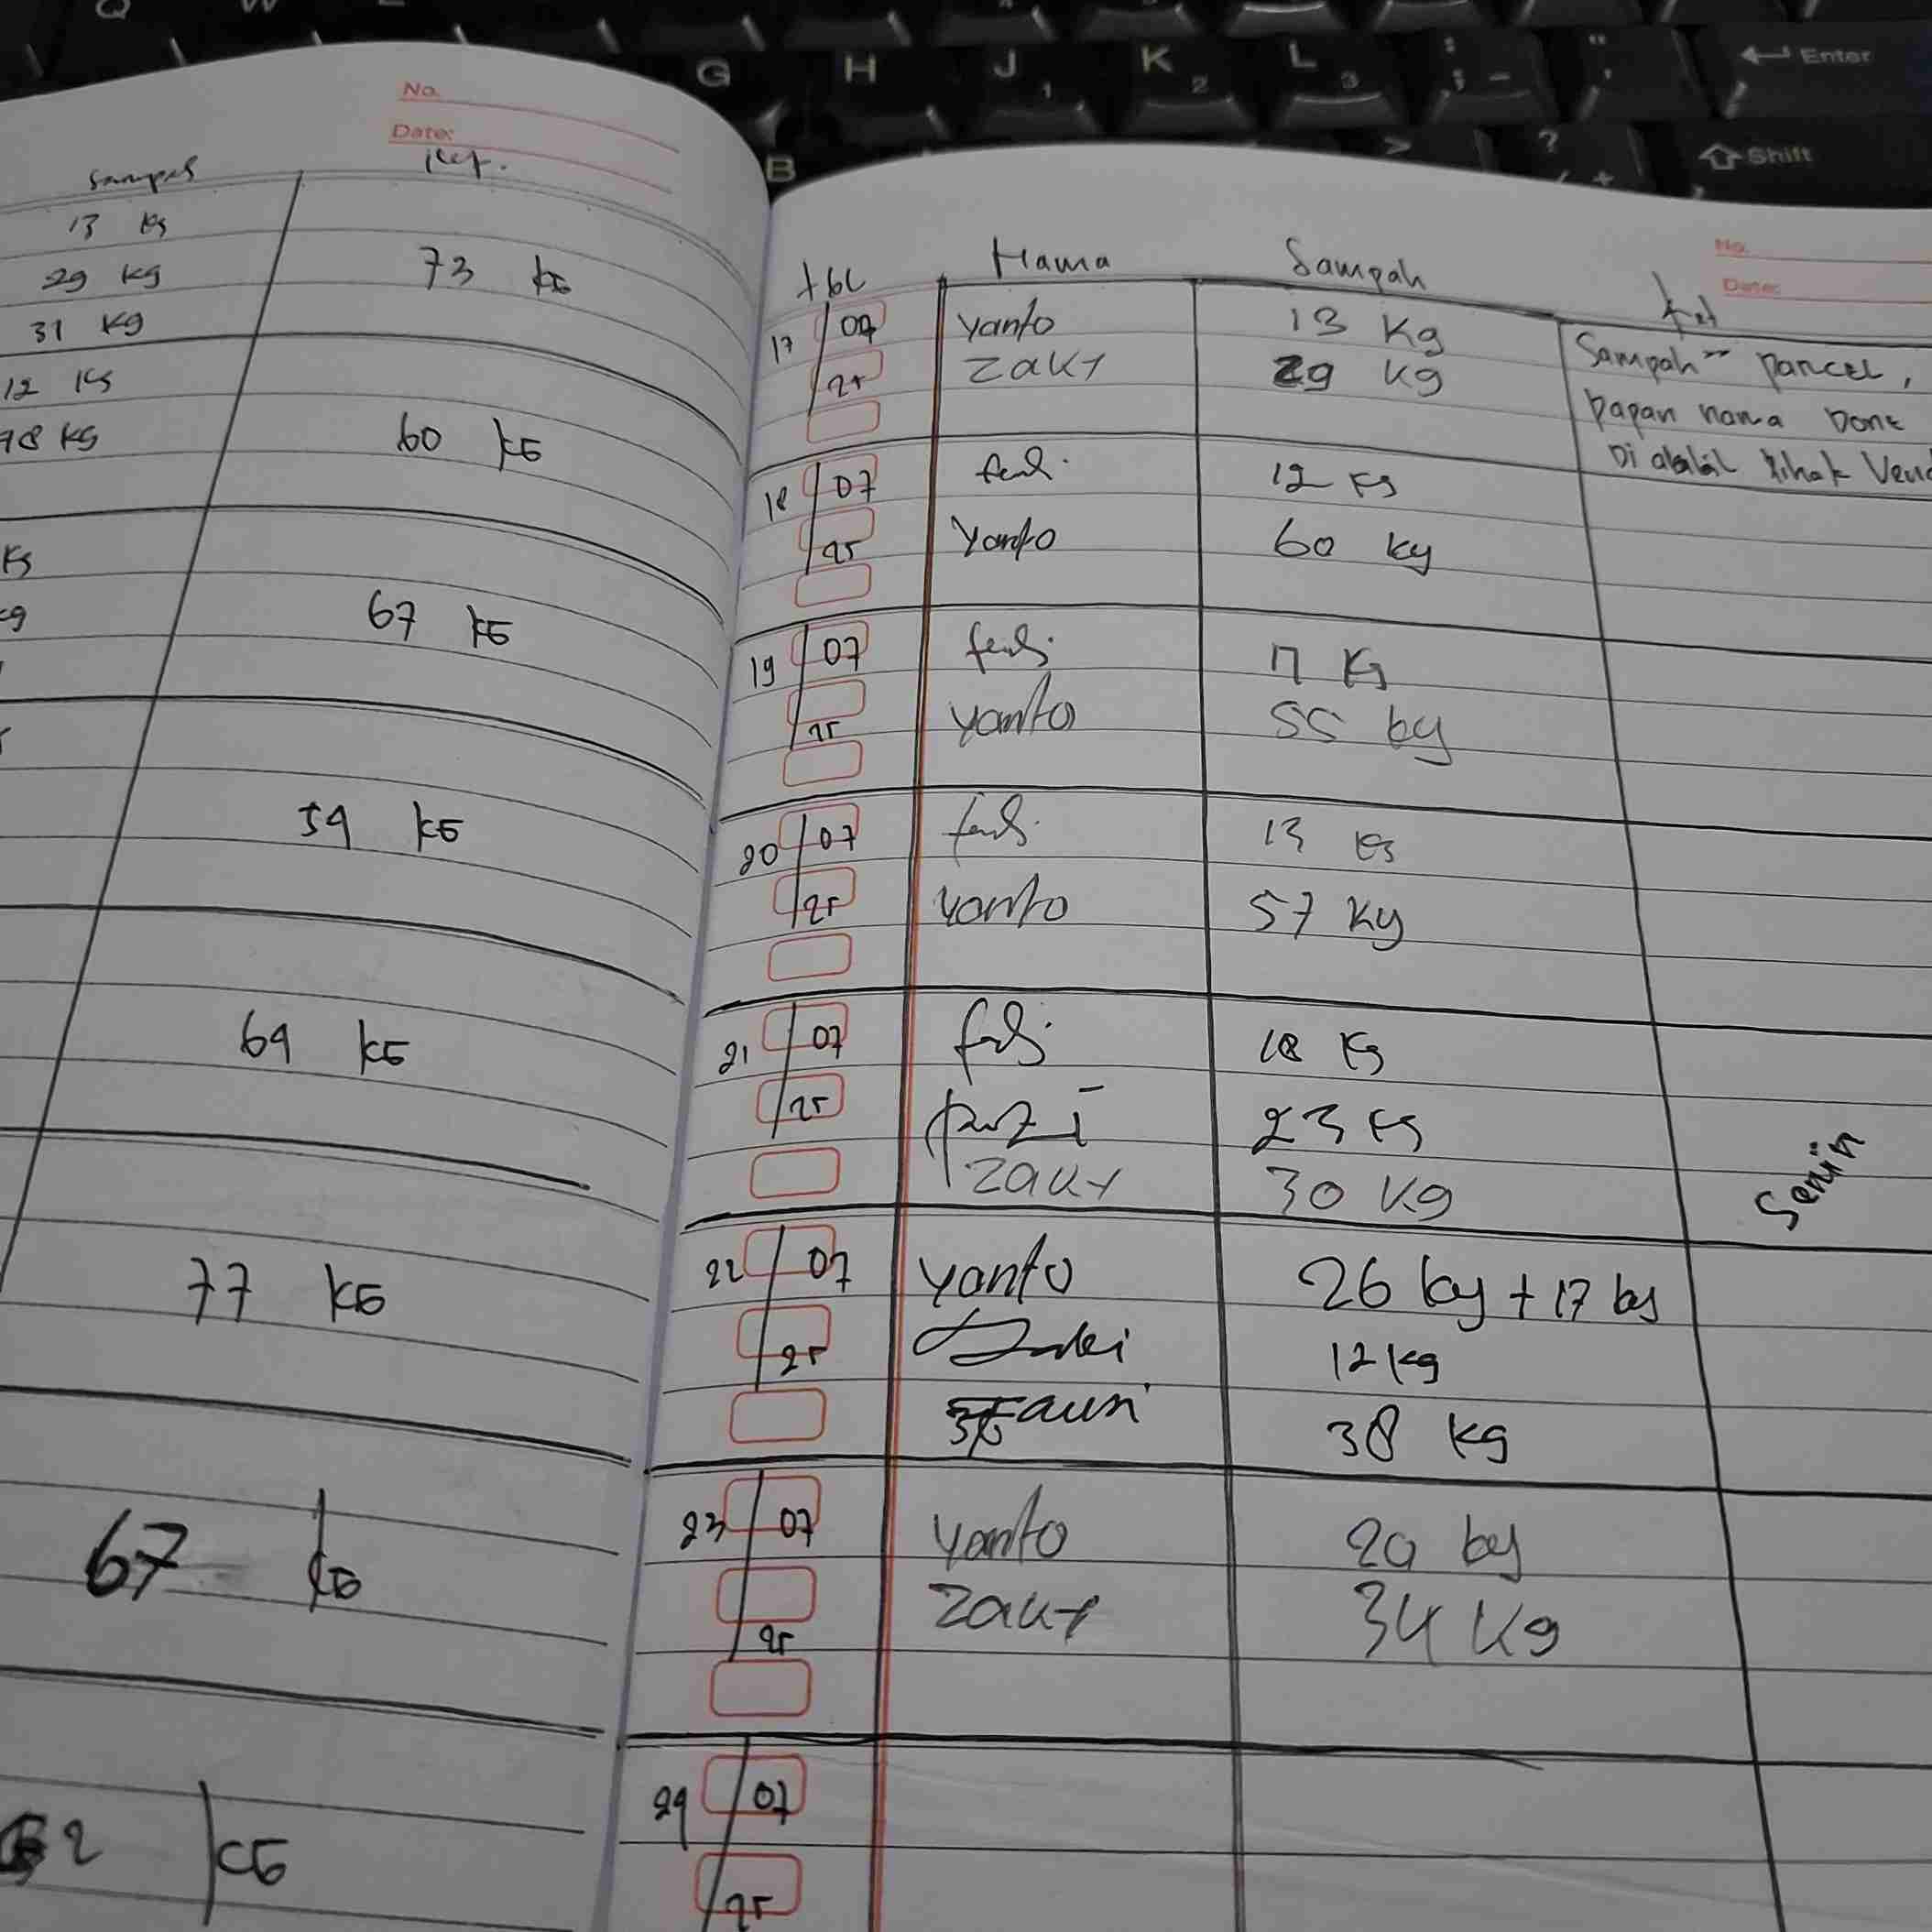 Q
G H J K L : " Enter
1 2 3 ; - '
B > ? Shift
No.
Date:
Sampah Ket.
13 Kg
29 Kg 73 KG
31 Kg
12 Kg
48 Kg 60 KG
Kg
Kg 67 KG
59 KG
69 KG
77 KG
67 KG
62 KG
No.
Date:
tgl Nama Sampah Ket
17 07 Yanto 13 Kg Sampah" Parcel,
25 Zaky 29 Kg papan nama Done
Di ambil Pihak Vend
18 07 fendi 12 Kg
25 Yanto 60 Kg
19 07 fendi 17 Kg
25 Yanto 55 Kg
20 07 fendi 13 Kg
25 Yanto 57 Kg
21 07 fendi 18 Kg
25 23 Kg
Zaky 30 Kg Senin
22 07 Yanto 26 Kg + 17 Kg
25 12 Kg
38 Kg
23 07 Yanto 29 Kg
25 Zaky 34 Kg
24 07
25